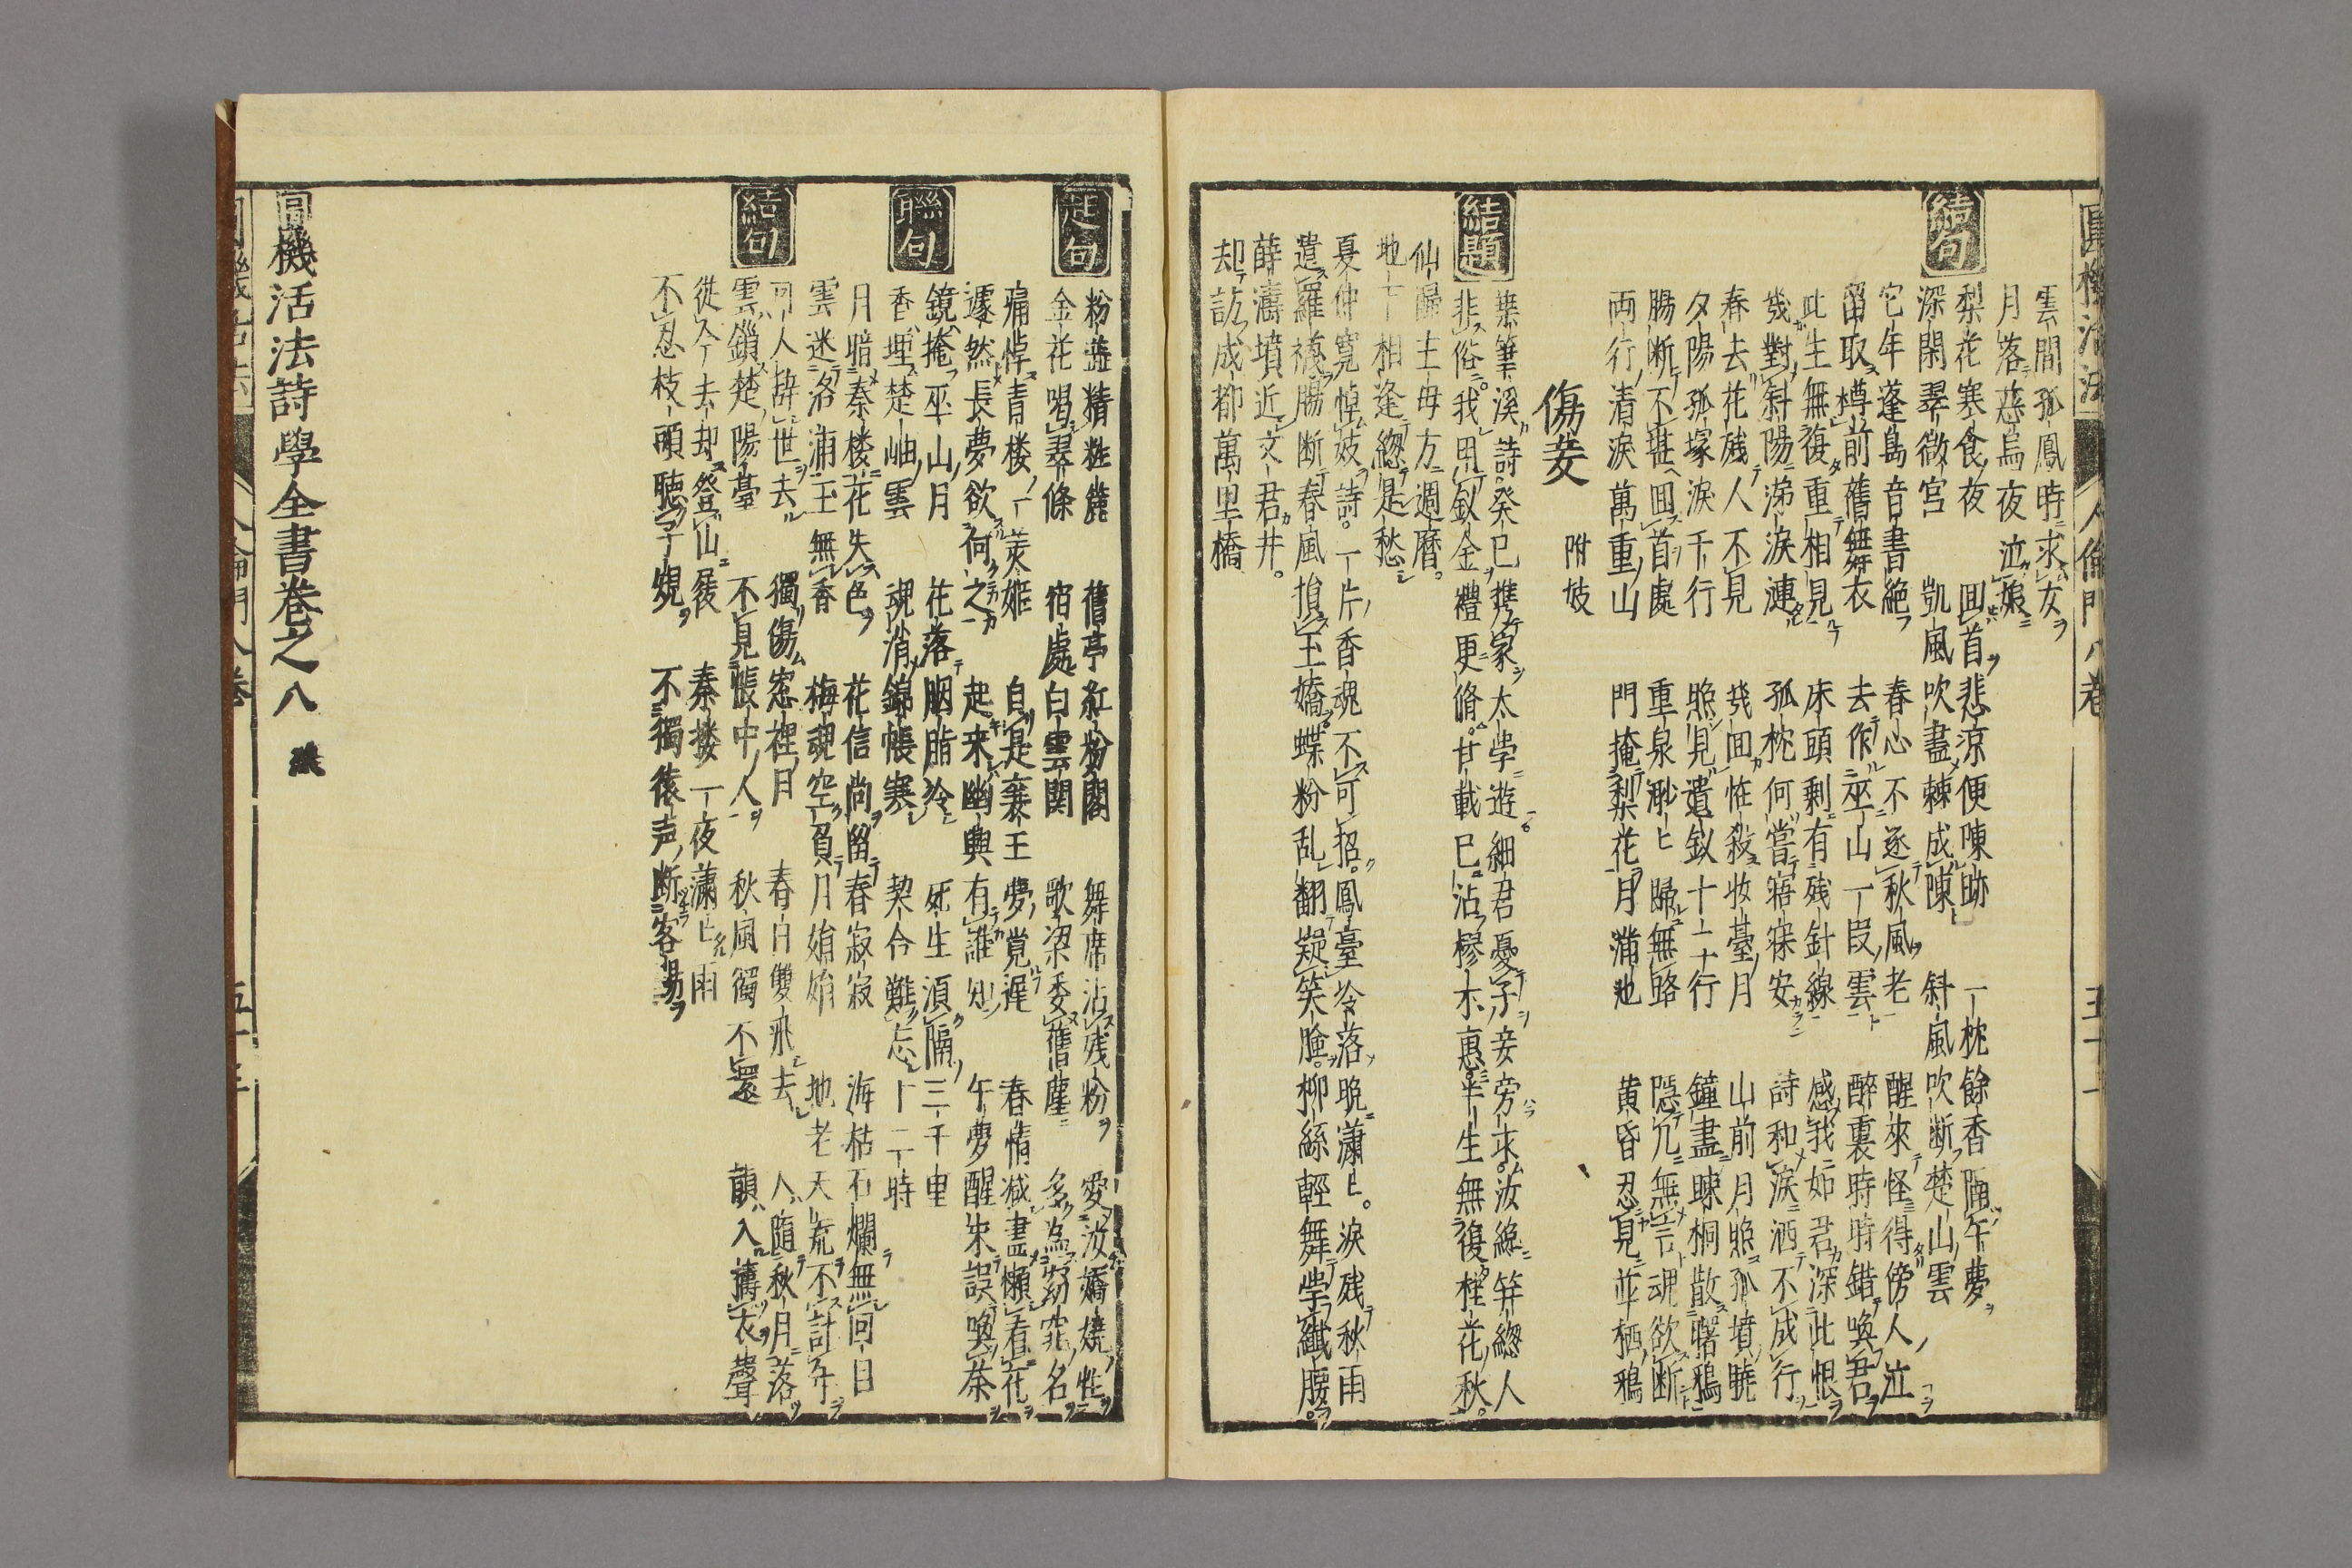 雲間孤鳳時求女
月落慈烏夜泣娘
結句
梨花寒食夜 回首悲涼便陳跡 一枕餘香 午夢
深閑翠微宮 凱風吹盡棘成陳 斜風吹断楚山雲
它年蓬島音書絶 春心不逐秋風老 醒來怪得傍人泣
留取樽前舊舞衣 去作巫山一段雲 醉裏時時錯喚君
此生無復重相見 床頭剩有残針線 感我如君深此恨
幾對斜陽涕淚漣 孤枕何嘗寤寐安 詩和淚洒不成行
春去花残人不見 幾回恠殺妝臺月 山前月照孤墳曉
夕陽孤塚淚千行 照見遺釵十二行 鐘盡疎桐散曙鴉
腸断不堪回首處 重泉渺ヒ歸無路 隱几無言魂欲断
両行清淚萬重山 門掩梨花月滿地 黄昏忍見並栖鴉
傷妾 附妓
結題
葉筆溪詩癸巳携家太学遊細君憂子妾旁求汝緣笄緫人
非俗我用釵金禮更脩甘載巳沾樛木惠半生無復桂花秋
仙歸王母方週曆
地下相逢緫是愁
夏仲寬悼妓詩一片香魂不可招鳳臺冷落晩瀟ヒ淚残秋雨
遺羅襪腸断春風損玉嬌蝶粉乱翻疑笑臉柳絲輕舞学纖腰
薛濤墳近文君井
却訪成都萬里橋
圓機活法 人倫門八巻 五十一
起句
粉 精粧麗 舊亭紅粉閣 舞席沾残粉 愛汝嬌嬈性
金花喝翠條 宿處白雲関 歌梁委舊塵 多為窈窕名
痛悼青楼一美姬 自是襄王夢覚遲 春情減盡懶看花
遽然長夢欲何之 起来幽興有誰知 午夢醒来誤喚茶
聯句
鏡掩巫山月 花落胭脂冷 死生須隔三千里
香埋楚岫雲 魂消錦帳寒 契合難忘十二時
月暗秦楼花失色 花信尚留春寂寂 海枯石爛無回日
雲迷洛浦玉無香 梅魂空負月娟娟 地老天荒不計年
結句
可人辞世去 獨傷窓裡月 春日雙飛去 人隨秋月落
雲鎖楚陽臺 不見帳中人 秋風獨不還 韻入擣衣聲
從今去却登山屐 秦楼一夜瀟ヒ雨
不忍枝頭聽子規 不獨猿声断客腸
圓機活法詩學全書巻之八 終
人倫門八巻